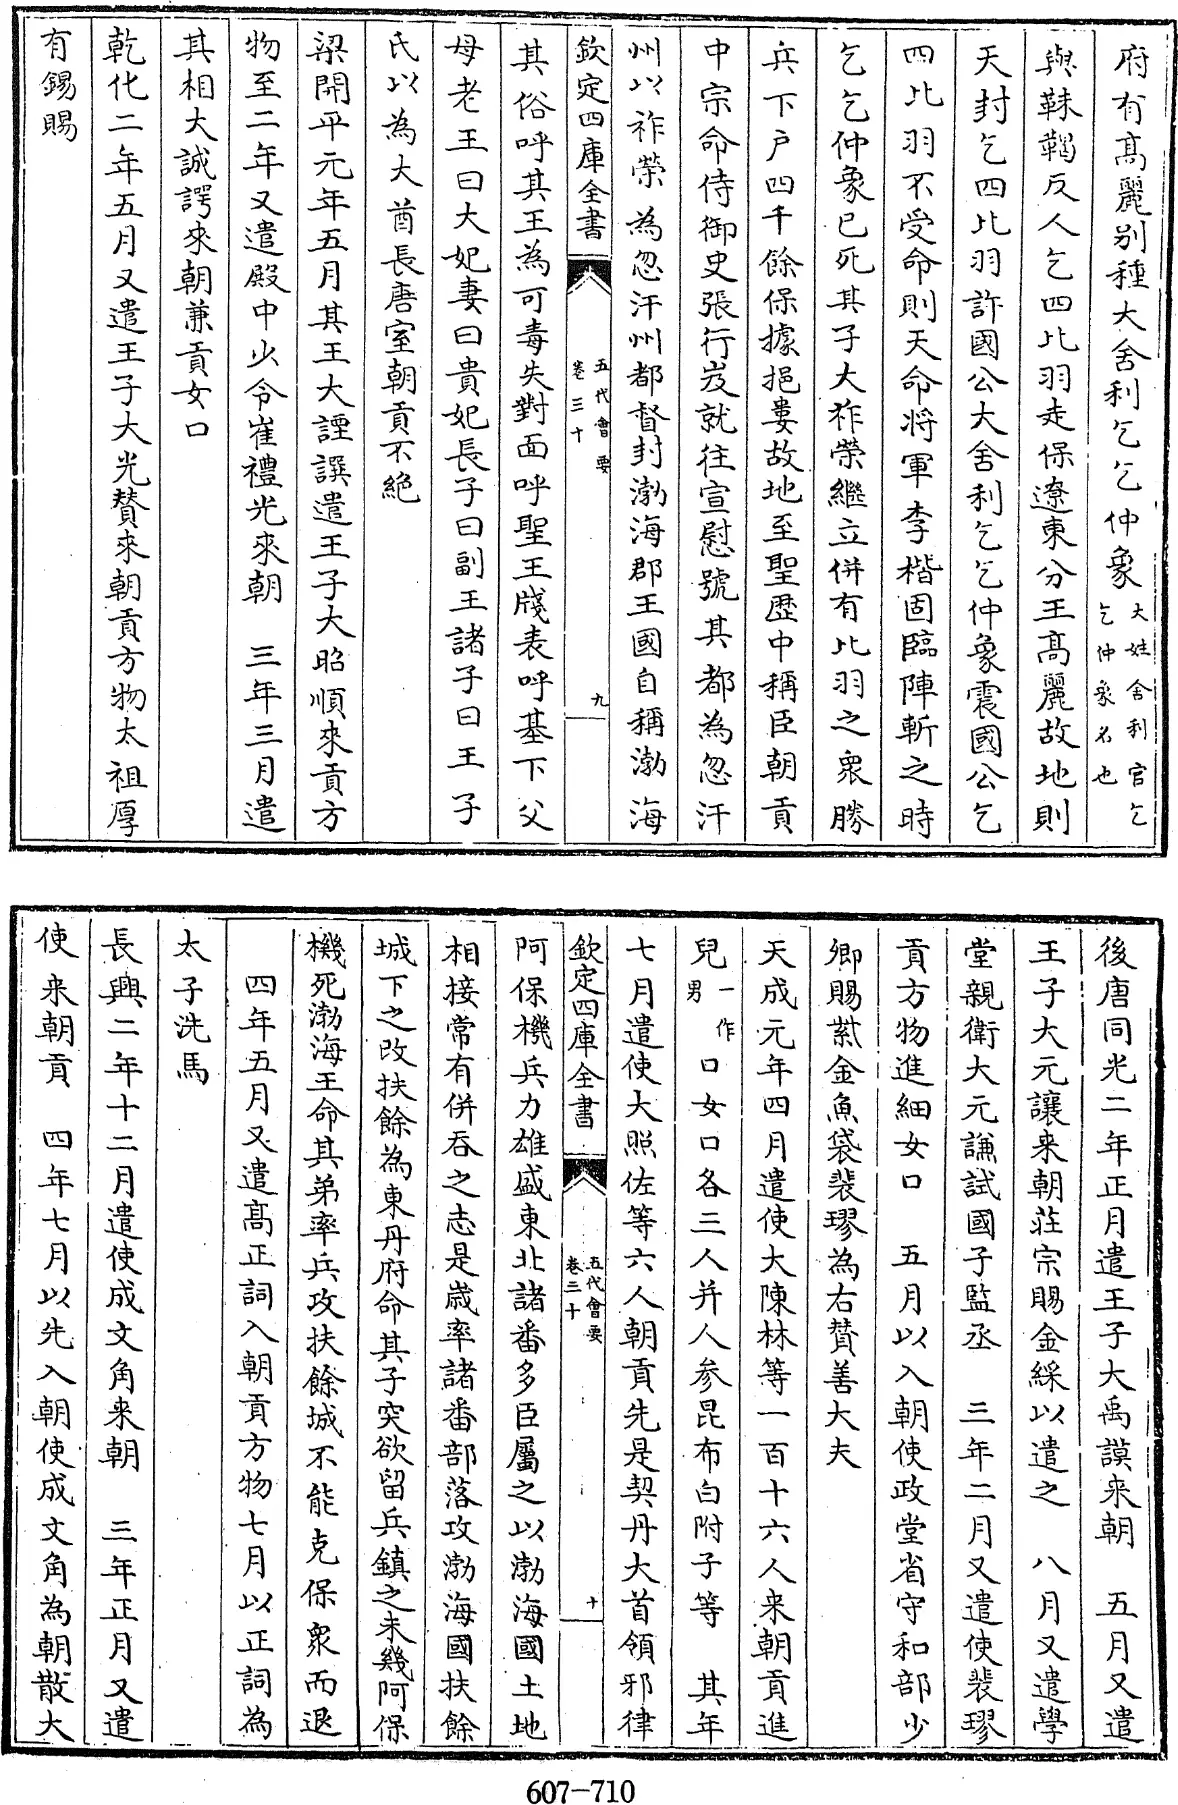 府有髙麗别種大舍利乞乞仲象大姓舍利官乞乞仲象名也
與靺鞨反人乞四比羽走保遼東分王髙麗故地則
天封乞四比羽許國公大舍利乞乞仲象震國公乞
四比羽不受命則天命將軍李楷固臨陣斬之時
乞乞仲象已死其子大祚榮繼立併有比羽之衆勝
兵下户四千餘保據挹婁故地至聖歷中稱臣朝貢
中宗命侍御史張行岌就往宣慰號其都為忽汗
州以祚榮為忽汗州都督封渤海郡王國自稱渤海
欽定四庫全書 五代會要 卷三十 九
其俗呼其王為可毒失對面呼聖王牋表呼基下父
母老王曰大妃妻曰貴妃長子曰副王諸子曰王子
氏以為大酋長唐室朝貢不絶
梁開平元年五月其王大諲譔遣王子大昭順來貢方
物至二年又遣殿中少令崔禮光來朝 三年三月遣
其相大誠諤來朝兼貢女口
乾化二年五月又遣王子大光賛來朝貢方物太祖厚
有錫賜
後唐同光二年正月遣王子大禹謨来朝 五月又遣
王子大元讓来朝莊宗賜金綵以遣之 八月又遣學
堂親衛大元謙試國子監丞 三年二月又遣使裴璆
貢方物進細女口 五月以入朝使政堂省守和部少
卿賜紫金魚袋裴璆為右賛善大夫
天成元年四月遣使大陳林等一百十六人来朝貢進
兒一作男口女口各三人并人參昆布白附子等 其年
七月遣使大照佐等六人朝貢先是契丹大首領邪律
欽定四庫全書 五代會要 卷三十 十
阿保機兵力雄盛東北諸番多臣屬之以渤海國土地
相接常有併吞之志是歳率諸番部落攻渤海國扶餘
城下之改扶餘為東丹府命其子突欲留兵鎮之未幾阿保
機死渤海王命其弟率兵攻扶餘城不能克保衆而退
四年五月又遣髙正詞入朝貢方物七月以正詞為
太子洗馬
長興二年十二月遣使成文角来朝 三年正月又遣
使来朝貢 四年七月以先入朝使成文角為朝散大
607-710